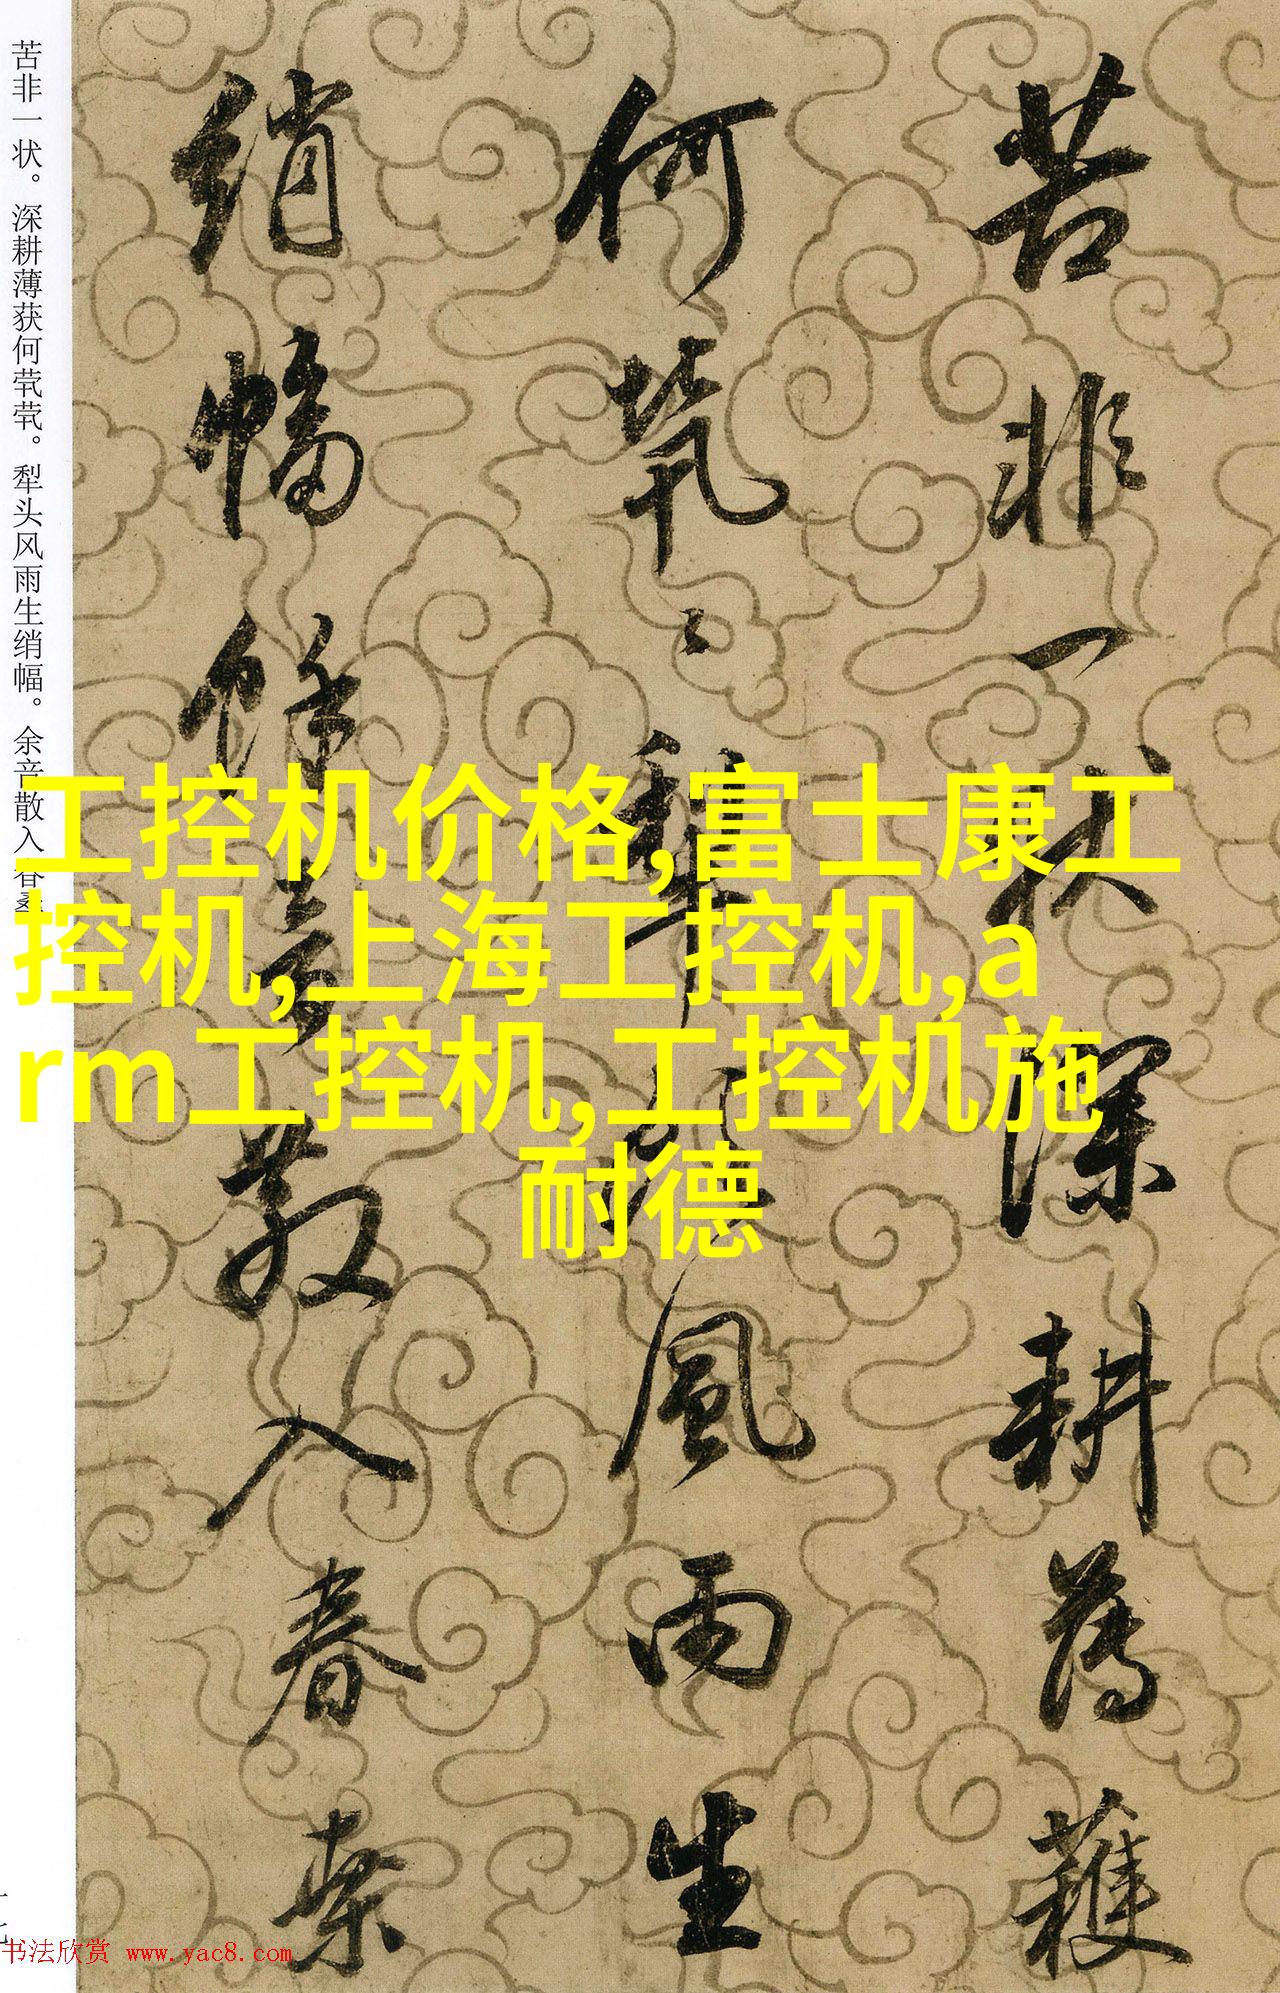 苦非一状。深耕薄获何茕茕。犁头风雨生绡幅。余音散入春桑
苦非一状深耕薄穫
何茕〻犁头風雨生
绡幅馀音散入春桑
工控机价格,富士康工
控机,上海工控机,a
rm工控机,工控机施
耐德
十七
书法欣赏 www.yac8.com